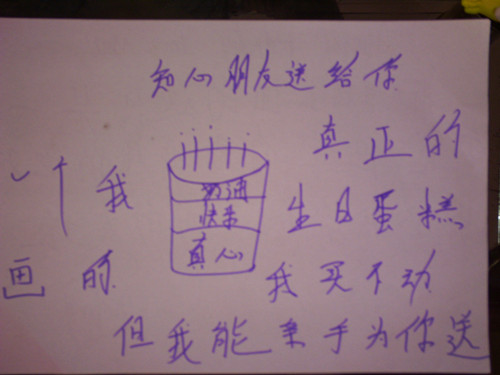 知心朋友送给你
真正的
个我
快乐
生日蛋糕
真心
画的
我买不动
但我能亲手为你送